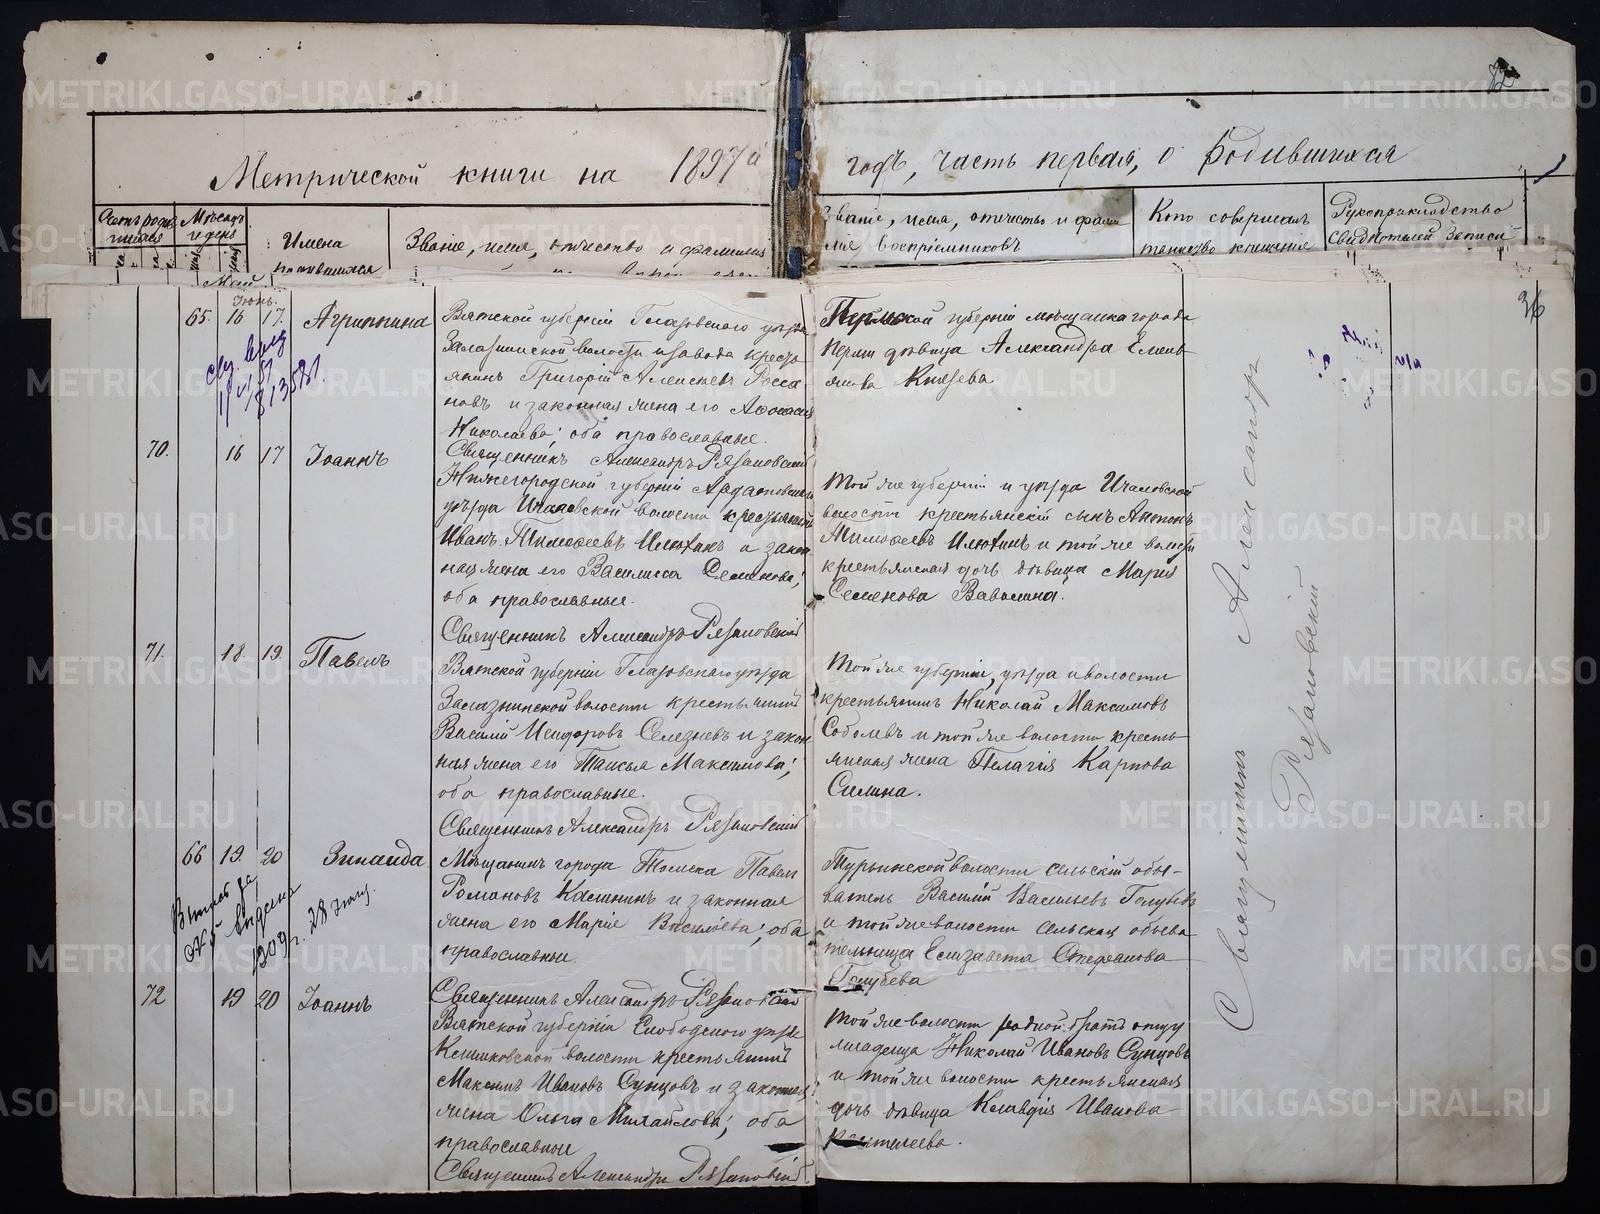 82
Метрической книги на 1897й
годъ, часть первая, о родившихся
Счетъ родив
шихся
Мѣсяцъ
и день
Имена
родившихся
Званіе, имя, отчество и фамилія
Званіе, имя, отчество и фами
лія воспріемниковъ
Кто совершалъ
таинство крещенія
Рукоприкладство
свидѣтелей записи
Май
Іюнь.
36
65. 16 17. Агриппина
Вятской губерніи Глазовского уѣзда
Залазнинской волости и завода кресть
янинъ Григорій Алексѣевъ Росса
новъ и законная жена его Афанасія
Николаева; оба православные.
Священникъ Александръ Рязановскій
Пермской губерніи мѣщанка города
Перми дѣвица Александра Емель
янова Князева
70. 16 17 Іоаннъ
Нижегородской губерніи Ардатовскаго
уѣзда Ичаловской волости крестьянинъ
Иванъ Тимофеевъ Илютинъ и закон
ная жена его Василисса Семенова;
оба православные.
Священникъ Александръ Рязановскій
Той же губерніи и уѣзда Ичаловской
волости крестьянскій сынъ Антонъ
Тимофеевъ Илютинъ и той же волости
крестьянская дочь дѣвица Марія
Семенова Вавилина.
71. 18. 19. Павелъ
Вятской губерніи Глазовскаго уѣзда
Залазнинской волости крестьянинъ
Василій Исидоровъ Селезневъ и закон
ная жена его Таисья Максимова;
оба православные.
Священникъ Александръ Рязановскій
Той же губерніи, уѣзда и волости
крестьянинъ Николай Максимовъ
Соболевъ и той же волости кресть
янская жена Пелагія Карпова
Силина.
66 19. 20 Зинаида
Мѣщанинъ города Томска Павелъ
Романовъ Калининъ и законная
жена его Марія Васильева; оба
православные.
Священникъ Александръ Рязановскій
Турьинской волости сельскій обы-
ватель Василій Васильевъ Голубевъ
и той же волости сельская обыва
тельница Елизавета Стефанова
Голубева
72 19 20 Іоаннъ
Вятской губерніи Слободского уѣзда
волости крестьянинъ
Максимъ Ивановъ Сунцовъ и законная
жена Ольга Михайлова; оба
православные
Священникъ Александръ Рязановскій
Той же волости родной братъ отцу
младенца Николай Ивановъ Сунцовъ
и той же волости крестьянская
дочь дѣвица Клавдія Иванова
Священникъ Александръ
Рязановскій
METRIKI.GASO-URAL.RU